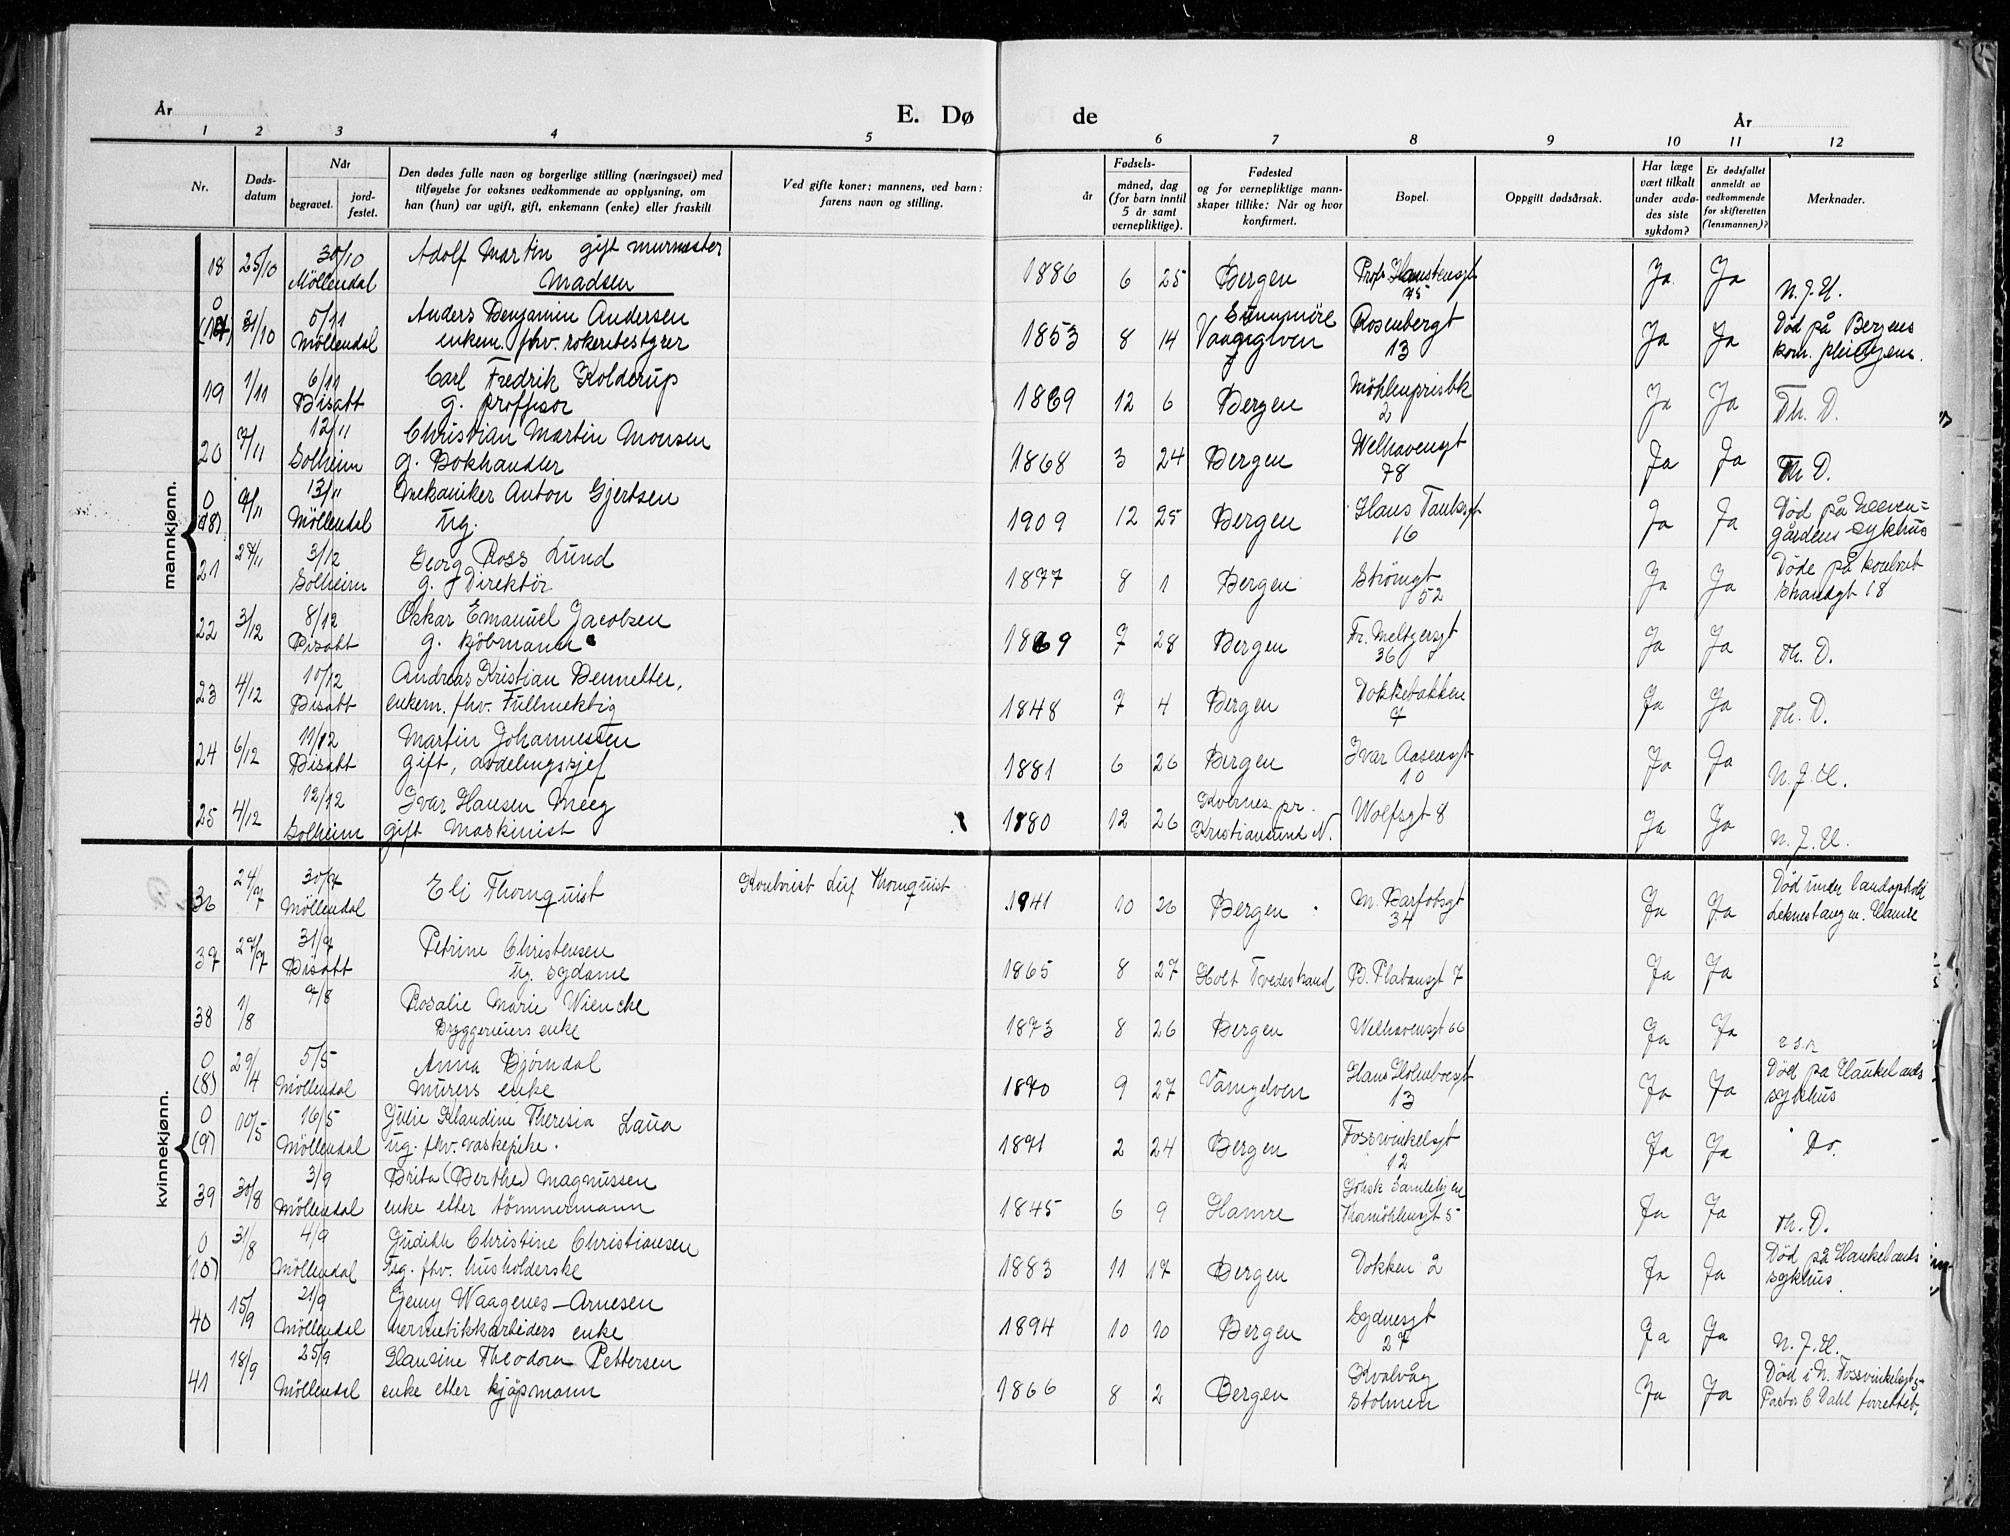 År
E. Dø de
År
1 2 3 4 5 6 7 8 9 10 11 12
Nr.
Døds-
datum
Når
begravet.
jord-
festet.
Den dødes fulle navn og borgerlige stilling (næringsvei) med
tilføyelse for voksnes vedkommende av opplysning, om
han (hun) var ugift, gift, enkemann (enke) eller fraskilt
Ved gifte koner: mannens, ved barn:
farens navn og stilling.
Fødsels-
år
måned, dag
(for barn inntil
5 år samt
vernepliktige).
Fødested
og for vernepliktige mann-
skaper tillike: Når og hvor
konfirmert.
Bopel.
Oppgitt dødsårsak.
Har læge
vært tilkalt
under avdø-
des siste
sykdom?
Er dødsfallet
anmeldt av
vedkommende
for skifteretten
(lensmannen)?
Merknader.
mannkjønn.
18 25/10 30/10 Adolf Martin gift murmester
Möllendal Madsen 1886 6 25 Bergen Prof. Hanstensgt 75 Ja Ja N.J.H.
0 31/10 5/11 Anders Benjamin Andersen
Möllendal enkem. fhv. 1853 8 14 Sunnmöre Rosenbergt 13 Ja Ja Død på Bergens
kom. pleiehjem.
19 1/11 6/11 Carl Fredrik Kolderup
Bisatt g. proffesor 1869 12 6 Bergen Möhlenprisbk 2 Ja Ja Th. D.
20 7/11 12/11 Christian Martin Monsen
Solheim g. Bokhandler 1868 3 24 Bergen Welhavensgt 78 Ja Ja Th D.
0 (18) 9/11 13/11 Mekaniker Anton Gjertsen
Möllendal ug. 1909 12 25 Bergen Hans Tanksgt 16 Ja Ja Død på Neeven=
gårdens sykhus
21 27/11 3/12 Georg Ross Lund
Solheim g. Direktör 1897 8 1 Bergen Strömgt 52 Ja Ja Døde på kontoret
Strandgt 18
22 3/12 8/12 Oskar Emanuel Jacobsen
Bisatt g. kjöbmann 1869 7 28 Bergen Fr. Meltzersgt 36 Ja Ja Th. D.
23 4/12 10/12 Andreas Kristian Bennetter,
Bisatt enkem. fhv. Fullmektig 1848 7 4 Bergen Dokkebakken 7 Ja Ja Th. D.
24 6/12 11/12 Martin Johannessen
Bisatt gift, avdelingssjef 1881 6 26 Bergen Ivar Aasensgt 10 Ja Ja N.J.H.
25 4/12 12/12 Ivar Hansen Meeg
Solheim gift Maskinist 1880 12 26 Kvernes pr.
Kristiansund N. Wolfsgt 8 Ja Ja N.J.H.
kvinnekjønn.
36 24/7 30/7 Eli Thornquist Kontorist Leif Thornquist
Möllendal 1941 10 26 Bergen M. Barfotsgt 34 Ja Ja Død under landophold
Leknestangen. Hamre
37 27/7 31/7 Petrine Christensen
Bisatt ug. sydame 1865 8 27 Holt Tvedestrand B. Platousgt 7 Ja Ja
38 1/8 7/8 Rosalie Marie Wiencke
Bryggerieiers enke 1873 8 26 Bergen Welhavensgt 66 Ja Ja
0 (8) 29/4 5/5 Anna Bjørndal
Möllendal Murers enke 1870 9 27 Hans Holmboesgt 13 Ja Ja Død på Haukelands
sykhus
0 (9) 10/5 16/5 Julie Klandine Theresia Laua
Möllendal ug. fhv. vaskepike. 1871 2 24 Bergen Fosswinkelsgt 12 Ja Ja Do.
39 30/8 3/9 Brita (Berthe) Magnussen
Möllendal enke etter tömmermann 1845 6 9 Hamre
Thormöhlensgt 5 Ja Ja Th. D.
0 (10) 31/8 4/9 Judith Christine Christiansen
Möllendal ug. fhv. husholderske 1883 11 17 Bergen Dokken 2 Ja Ja Død på Haukelands
sykhus
40 15/9 21/9 Jenny Waagenes-Arnesen
Möllendal hermetikkarbeiders enke 1894 10 10 Bergen Sydnesgt 27 Ja Ja N.J.H.
41 18/9 25/9 Hansine Theodora Pettersen
Möllendal enke etter kjøpmann 1866 8 2 Bergen Kvalvåg
Stolmen Ja Ja Død i N. Fosswinkelsgt 5-
Pastor C Dahl forrettet.